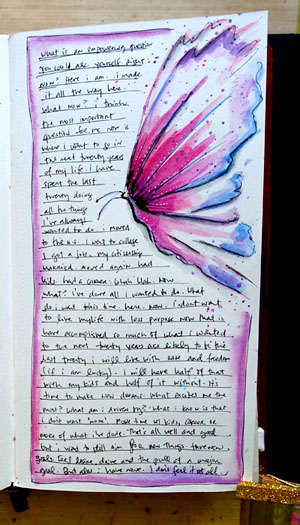 What is an empowering question
you could ask yourself right
now? Here i am. i made
it all the way here.
what now? i think
the most important
question for me now is
where i want to go in
the next twenty years
of my life. i have
spent the last
twenty doing
all the things
i've always
wanted to do. i moved
to the u.s. i went to college
i got a job, my citizenship
married. moved again had
kids. had a career. blah blah. Now
what? i've done all i wanted to do. What
do i want this time. here. Now. i don't want
to live my life with less purpose now that i
have accomplished so much of what i wanted
to. the next twenty years are likely to be the
last twenty i will live with ease and freedom
(if i am lucky). i will have half of that
with my kids and half of it without. It's
time to make new dreams. What excites me the
most? What am i driven by? What i know is that
i don't want "more". More time w/ kids, career or
more of what i've done. That's all well and good
but i want to aim for new things. new
goals. feel desire, drive and the pull of a major
goal. But alas i have none. I don't feel it at all.